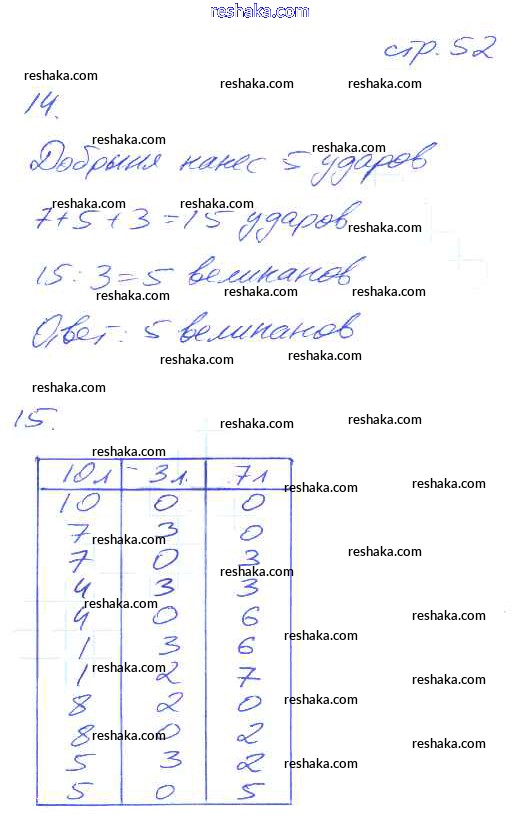 reshaka.com
стр. 52
reshaka.com
reshaka.com reshaka.com
14.
reshaka.com
reshaka.com
Добрыня нанес 5 ударов
reshaka.com reshaka.com
7+5+3=15 ударов
reshaka.com
15:3=5 великанов
reshaka.com reshaka.com reshaka.com
Ответ: 5 великанов
reshaka.com reshaka.com
reshaka.com
15.
reshaka.com reshaka.com
reshaka.com
10л 3л. 7л
reshaka.com reshaka.com
10 0 0
7 3 0
reshaka.com
7 0 3
reshaka.com
reshaka.com
4 3 3
reshaka.com
4 0 6
reshaka.com
reshaka.com
1 3 6
reshaka.com
1 2 7
reshaka.com
8 2 0
reshaka.com
8 0 2
reshaka.com
reshaka.com
5 3 2
reshaka.com
5 0 5